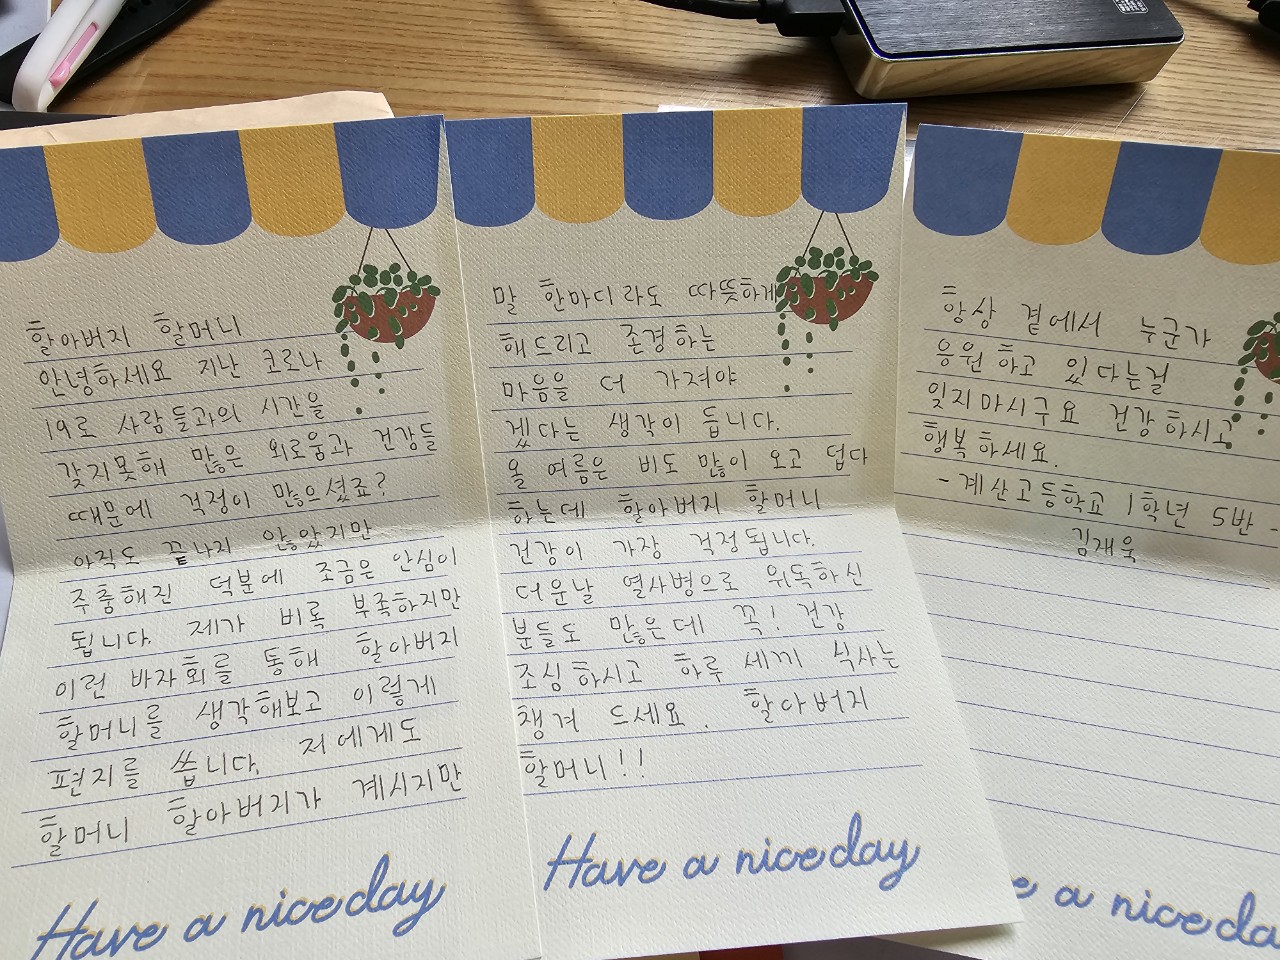 할아버지 할머니
안녕하세요 지난 코로나
19로 사람들과의 시간을
갖지못해 많은 외로움과 건강들
때문에 걱정이 많으셨죠?
아직도 끝나지 않았지만
주춤해진 덕분에 조금은 안심이
됩니다. 제가 비록 부족하지만
이런 바자회를 통해 할아버지
할머니를 생각해보고 이렇게
편지를 씁니다. 저에게도
할머니 할아버지가 계시지만
Have a nice day
말 한마디라도 따뜻하게
해드리고 존경하는
마음을 더 가져야
겠다는 생각이 듭니다.
올 여름은 비도 많이 오고 덥다
하는데 할아버지 할머니
건강이 가장 걱정됩니다.
더운날 열사병으로 위독하신
분들도 많은데 꼭! 건강
조심하시고 하루 세끼 식사는
챙겨 드세요. 할아버지
할머니!!
Have a nice day
항상 곁에서 누군가
응원하고 있다는걸
잊지마시구요 건강하시고
행복하세요.
- 계산고등학교 1학년 5반 -
김재욱
e a nice da